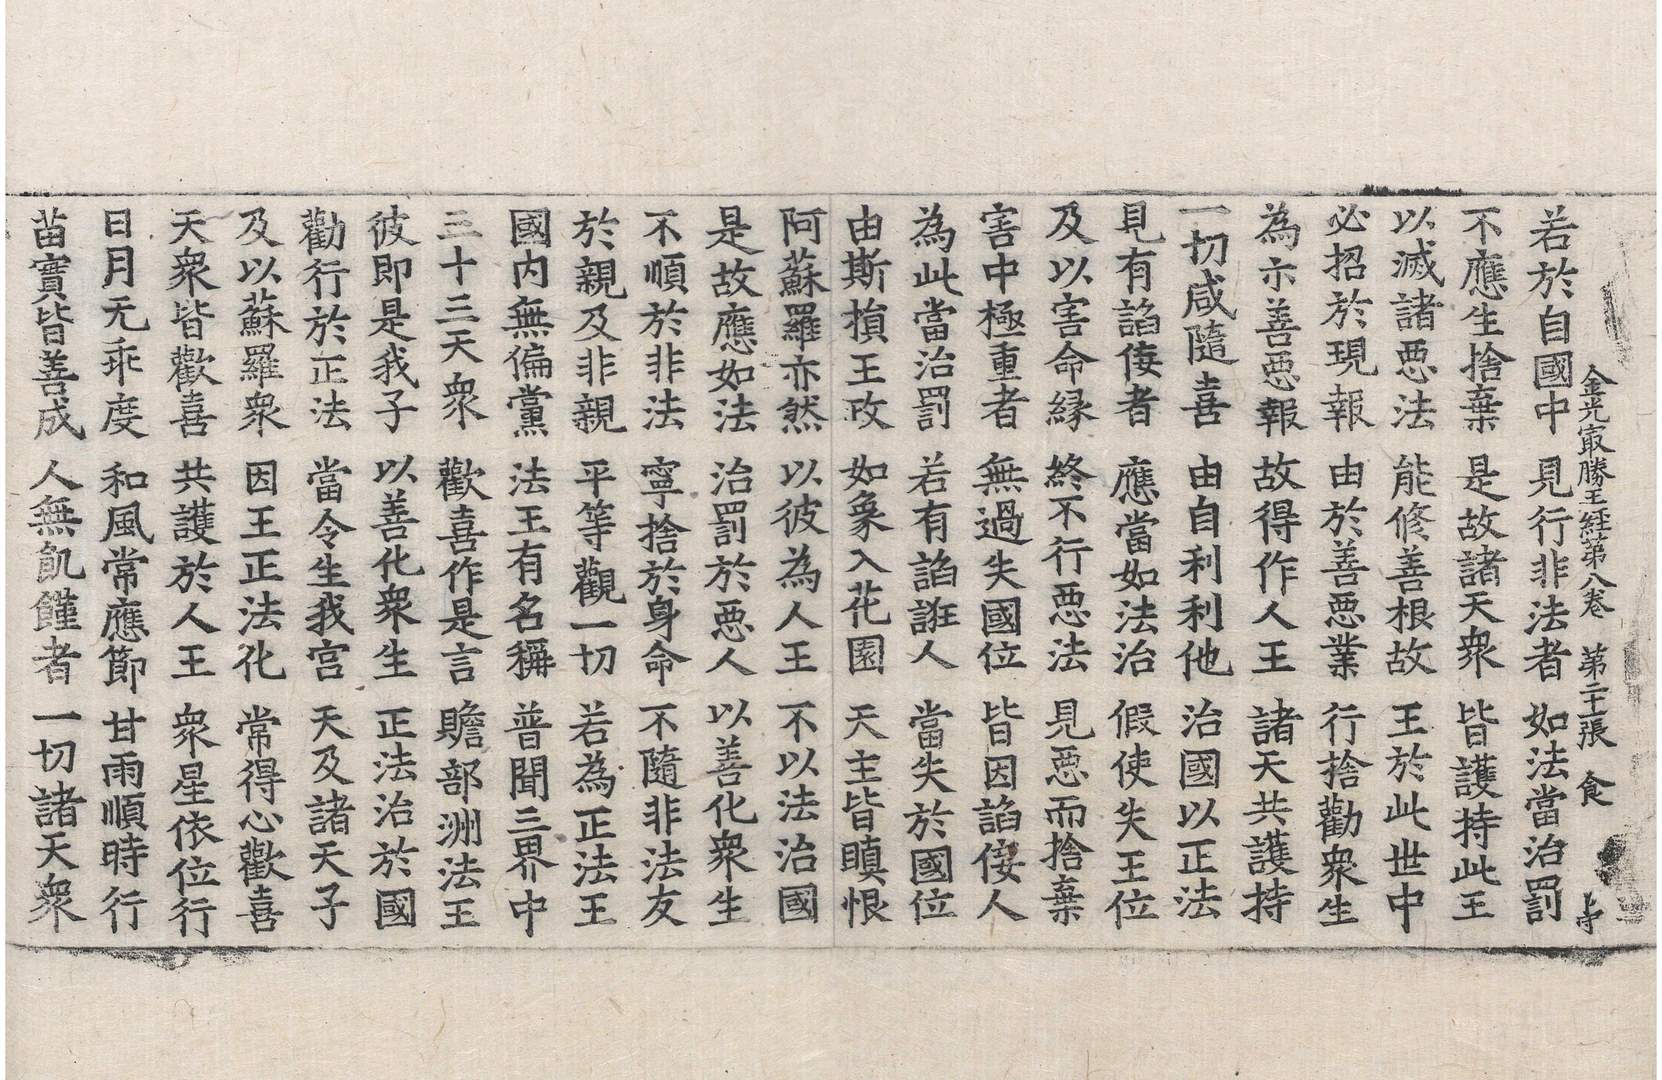 金光㝡勝王経第八卷 第二十張 食
若於自國中 見行非法者 如法當治罰
不應生捨棄 是故諸天衆 皆護持此王
以滅諸惡法 能修善根故 王於此世中
必招於現報 由於善惡業 行捨勸衆生
為示善惡報 故得作人王 諸天共護持
一切咸隨喜 由自利利他 治國以正法
見有諂侫者 應當如法治 假使失王位
及以害命縁 終不行惡法 見惡而捨棄
害中極重者 無過失國位 皆因諂侫人
為此當治罰 若有諂誑人 當失於國位
由斯損王政 如象入花園 天主皆瞋恨
阿蘇羅亦然 以彼為人王 不以法治國
是故應如法 治罰於惡人 以善化衆生
不順於非法 寧捨於身命 不隨非法友
於親及非親 平等觀一切 若為正法王
國内無偏黨 法王有名稱 普聞三界中
三十三天衆 歡喜作是言 贍部洲法王
彼即是我子 以善化衆生 正法治於國
勸行於正法 當令生我宮 天及諸天子
及以蘇羅衆 因王正法化 常得心歡喜
天衆皆歡喜 共護於人王 衆星依位行
日月无乖度 和風常應節 甘雨順時行
苗實皆善成 人無飢饉者 一切諸天衆